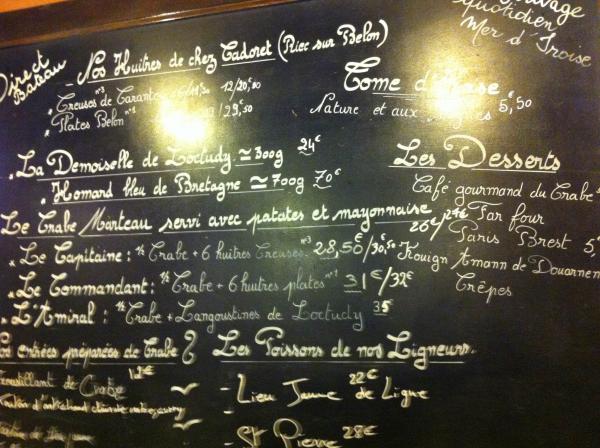 Direct
Bateau
Nos Huitres de chez Cadoret (Riec sur Belon)
Creuses de Tarante n°3 12/20,50
Plates Belon n°1 /29,50
La Demoiselle de Loctudy ≃ 300g 24€
Homard bleu de Bretagne ≃ 700g 70€
Le Crabe Manteau servi avec patates et mayonnaise 26€/24€
Le Capitaine : ½ Crabe + 6 huitres Creuses n°3 28,50/30,50
Le Commandant : ½ Crabe + 6 huitres plates n°1 31€/32€
L'Amiral : ½ Crabe + Langoustines de Loctudy 35€
entrées préparées de Crabe
Croustillant de Crabe
Les Poissons de nos Ligneurs.
- Lieu Jaune de Ligne 22€
- St Pierre 28€
quotidien
Mer d'Iroise
Tome d'
Nature et aux 5,50
Les Desserts
Café gourmand du Crabe
Far four
Paris Brest 5,
Kouign Amann de Douarnen
Crêpes